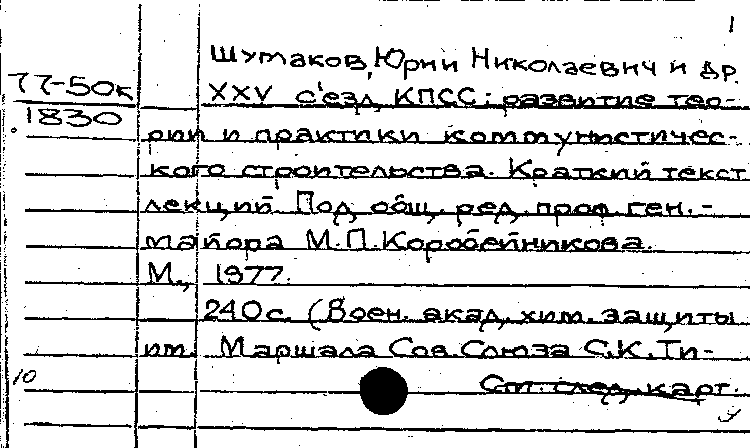 1
Шутаков, Юрий Николаевич и др.
77-50к
XXV съезд КПСС: развитие тео-
1830
рии и практики коммунистичес-
кого строительства. Краткий текст
лекций. Под общ. ред. проф. ген.-
майора М.П. Коробейникова.
М., 1977.
240 с. (Воен. акад. хим. защиты
им. Маршала Сов. Союза С.К. Ти-
10
См. след. карт.